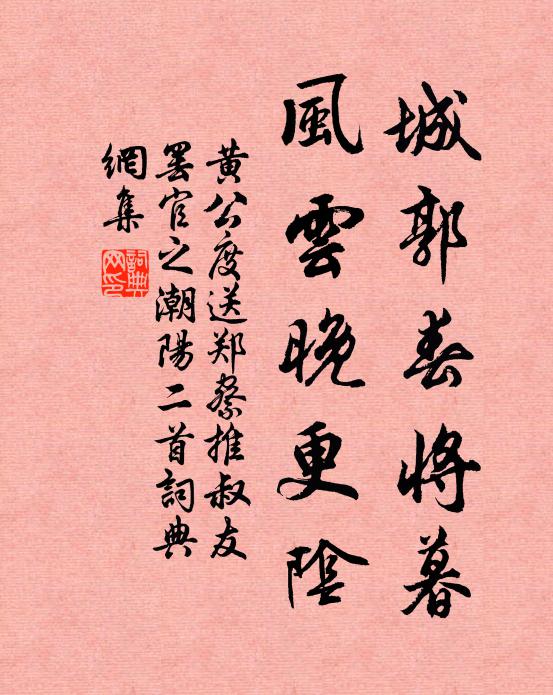 城郭春將暮
風雲晚更陰
黄公度送郑察推叔友
罢官之潮陽二首詞典
網集
詞典网印